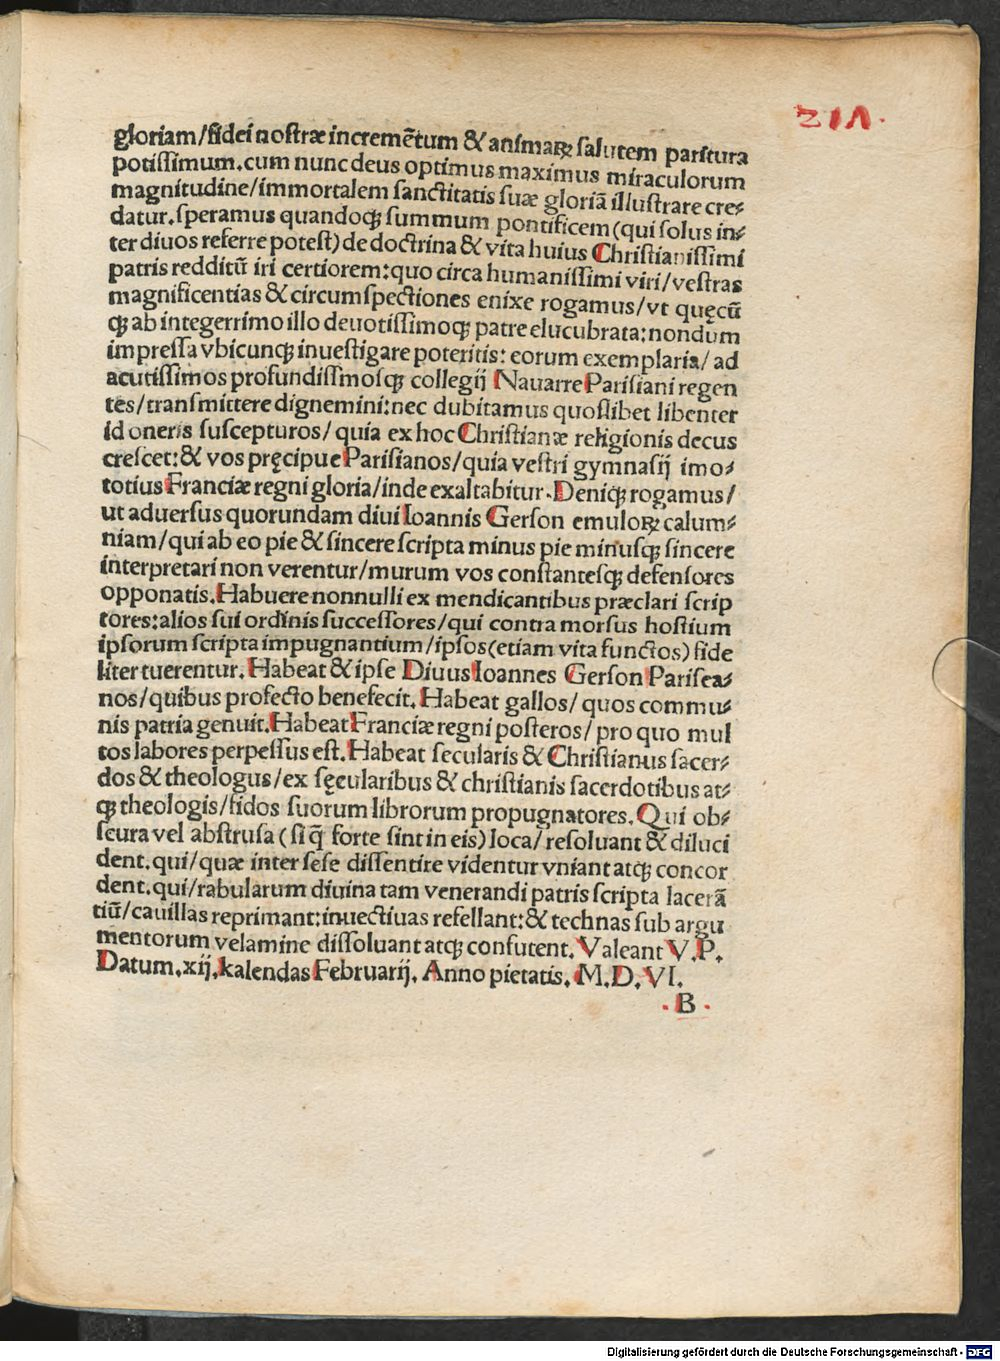 217.
gloriam/fidei nostræ incremẽtum & animaꝝ salutem paritura
potissimum. cum nunc deus optimus maximus miraculorum
magnitudine/immortalem sanctitatis suæ gloriã illustrare cre⸗
datur. speramus quandoqꝫ summum pontificem (qui solus in⸗
ter diuos referre potest) de doctrina & vita huius Christianissimi
patris redditũ iri certiorem: quo circa humanissimi viri/vestras
magnificentias & circumspectiones enixe rogamus/vt quęcũ
qꝫ ab integerrimo illo deuotissimoqꝫ patre elucubrata: nondum
impressa vbicunqꝫ inuestigare poteritis: eorum exemplaria/ ad
acutissimos profundissimosqꝫ collegij Nauarre Parisiani regen
tes/transmittere dignemini: nec dubitamus quoslibet libenter
id oneris suscepturos/ quia ex hoc Christianæ religionis decus
crescet: & vos pręcipue Parisianos/quia vestri gymnasij imo⸗
totius Franciæ regni gloria/inde exaltabitur. Deniqꝫ rogamus/
ut aduersus quorundam diui Ioannis Gerson emuloꝝ calum⸗
niam/qui ab eo pie & sincere scripta minus pie minusqꝫ sincere
interpretari non verentur/murum vos constantesqꝫ defensores
opponatis. Habuere nonnulli ex mendicantibus præclari scrip
tores: alios sui ordinis successores/qui contra morsus hostium
ipsorum scripta impugnantium/ipsos (etiam vita functos) fide
liter tuerentur. Habeat & ipse Diuus Ioannes Gerson Parisea⸗
nos/quibus profecto benefecit. Habeat gallos/ quos commu⸗
nis patria genuit. Habeat Franciæ regni posteros/ pro quo mul
tos labores perpessus est. Habeat secularis & Christianus sacer⸗
dos & theologus/ex sęcularibus & christianis sacerdotibus at⸗
qꝫ theologis/fidos suorum librorum propugnatores. Qui ob⸗
scura vel abstrusa (si q̃ forte sint in eis) loca/ resoluant & diluci
dent. qui/quæ inter sese dissentire videntur vniant atqꝫ concor
dent. qui/rabularum diuina tam venerandi patris scripta lacerã
tiũ/cauillas reprimant: inuectiuas refellant: & technas sub argu
mentorum velamine dissoluant atqꝫ confutent. Valeant V. P.
Datum. xij. kalendas Februarij. Anno pietatis. M. D. VI.
. B .
Digitalisierung gefördert durch die Deutsche Forschungsgemeinschaft - DFG